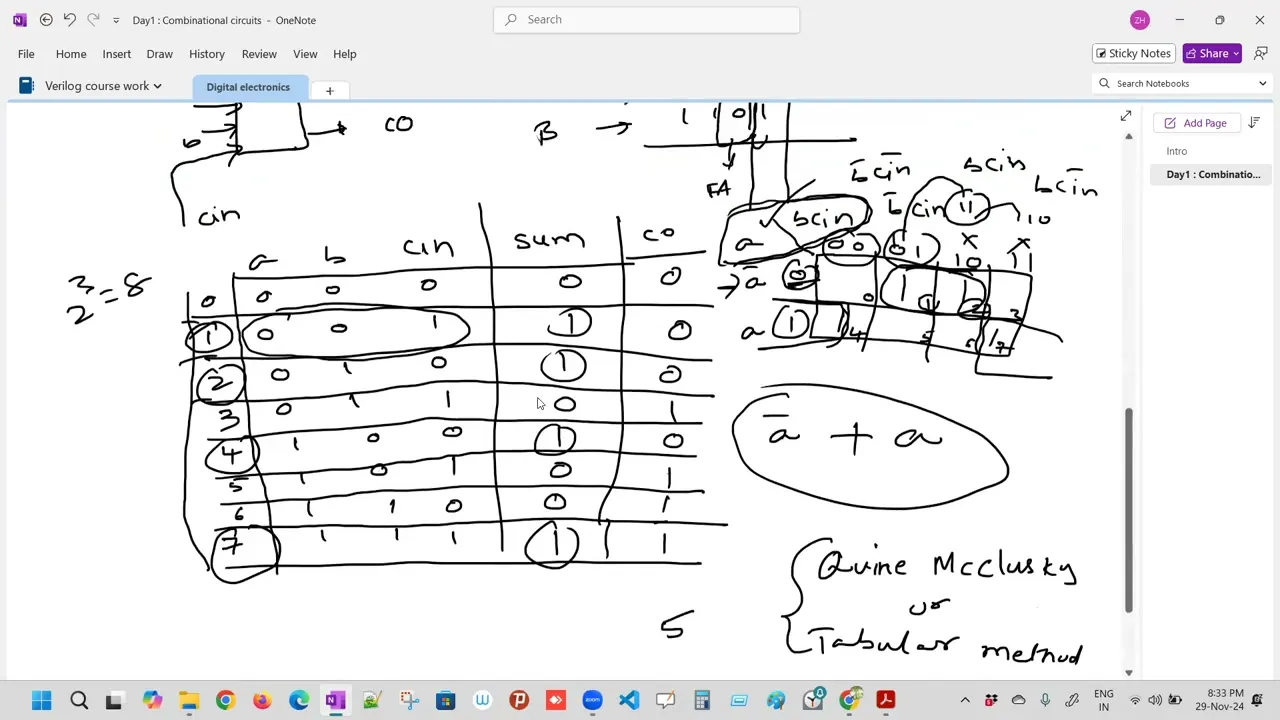 Day1 : Combinational circuits - OneNote
Search
ZH
File Home Insert Draw History Review View Help
Sticky Notes
Share
Verilog course work
Digital electronics
+
Search Notebooks
Add Page
Intro
Day1 : Combinatio...
co
B
1 1 0 1
FA
cin
b̄ c̄in
bcin
bc̄in
b̄ cin 11 10
a bcin
00 01 10 11
x x
ā 0 0 1 1 1 2 3
a 1 1 4 5 6 1 7
2³ = 8
a b cin sum co
0 0 0 0 0 0
1 0 0 1 1 0
2 0 1 0 1 0
3 0 1 1 0 1
4 1 0 0 1 0
5 1 0 1 0 1
6 1 1 0 0 1
7 1 1 1 1 1
ā + a
Quine McClusky
or
Tabular method
5
ENG
IN
8:33 PM
29-Nov-24